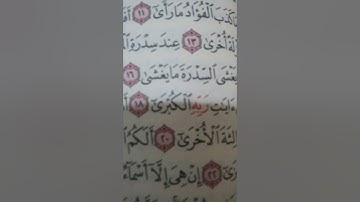 كَذَبَ الْفُؤَادُ مَا رَأَىٰ ١١
أُخْرَىٰ ١٣ عِندَ سِدْرَةِ
السِّدْرَةَ مَا يَغْشَىٰ ١٦
رَبِّهِ الْكُبْرَىٰ ١٨
الْأُخْرَىٰ ٢٠ أَلَكُمُ
٢٢ إِنْ هِيَ إِلَّا أَسْمَاءٌ